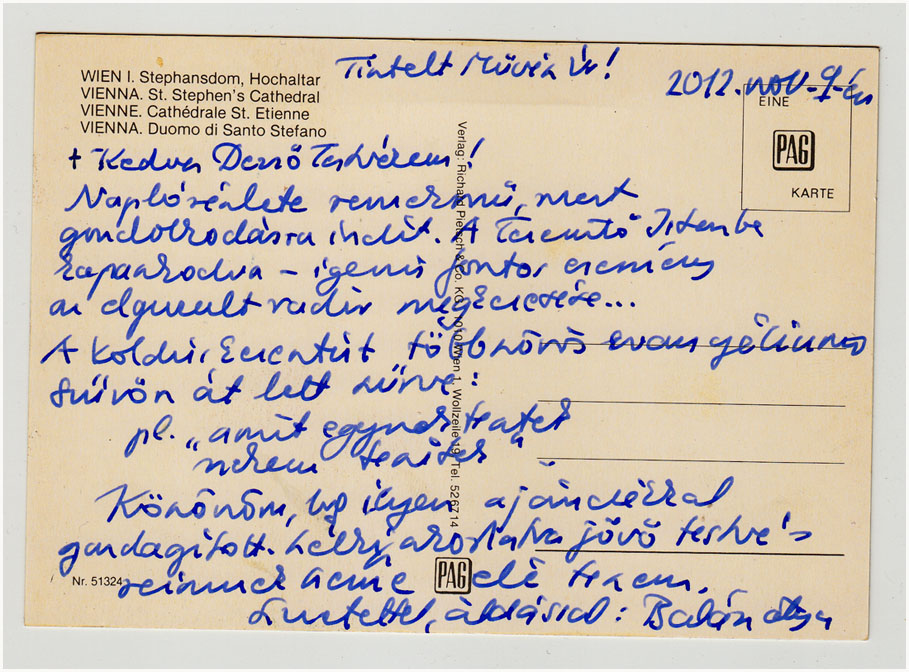 WIEN I. Stephansdom, Hochaltar
VIENNA. St. Stephen's Cathedral
VIENNE. Cathédrale St. Etienne
VIENNA. Duomo di Santo Stefano
Tisztelt Művész Úr!
2012. nov. 9-én
EINE
PAG
KARTE
+ Kedves Dezső Testvérem!
remekmű, mert
gondolkodásra indít. A Teremtő Istenbe
kapaszkodva – igenis fontos esemény
az elgurult radír megkeresése...
A koldus többszörös evangéliumos
szűrőn át lett szűrve:
pl. „amit egynek tesztek
nekem teszitek"
Köszönöm, hogy ilyen ajándékkal
gazdagított. Lelkigyakorlatra jövő testvé-
reimnek eléje teszem.
Szeretettel, áldással: Balázs atya
Verlag: Richard Pietsch & Co. KG, 1010 Wien 1, Wollzeile 19, Tel. 526714
Nr. 51324
PAG